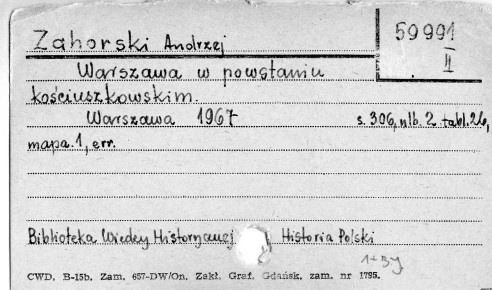 Zahorski Andrzej
59991
II
Warszawa w powstaniu
kościuszkowskim.
Warszawa 1967 s. 306, nlb. 2 tabl. 26,
mapa. 1, err.
Biblioteka Wiedzy Historycznej Historia Polski
1+By
CWD. B-15b. Zam. 657-DW/On. Zakł. Graf. Gdańsk, zam. nr 1795.